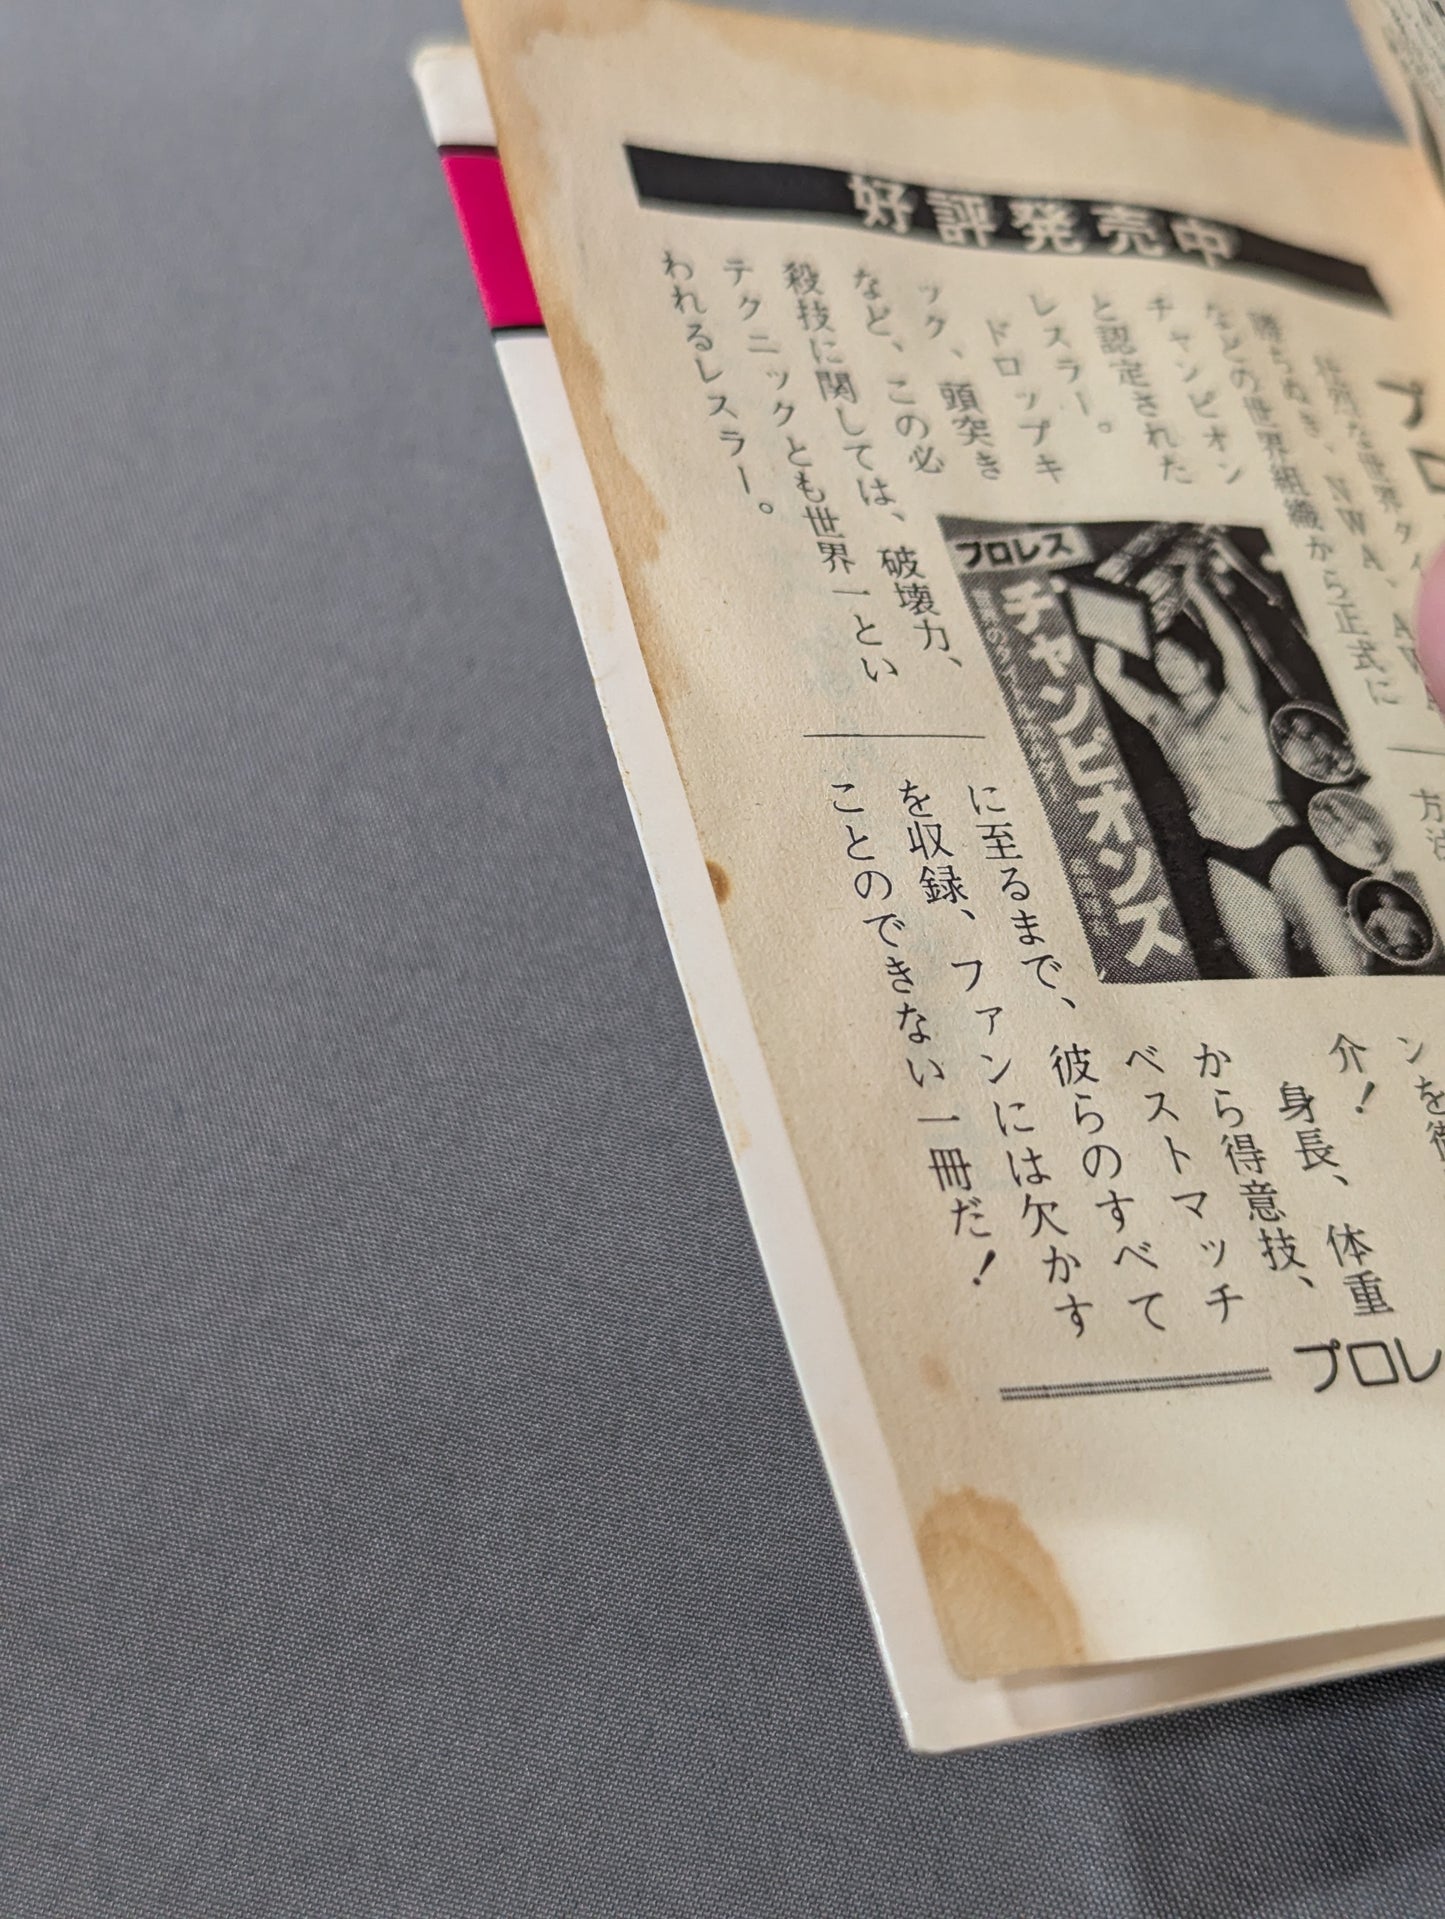 好評発売中
プロ
勝ちぬき、NWA、AWA
などの世界組織から正式に
チャンピオン
と認定された
レスラー。
ドロップキ
ック、頭突き
など、この必
殺技に関しては、破壊力、
テクニックとも世界一とい
われるレスラー。
プロレス
チャンピオンズ
方法
ンを
介!
身長、体重
から得意技、
ベストマッチ
彼らのすべて
に至るまで、
を収録、ファンには欠かす
ことのできない一冊だ!
プロレ